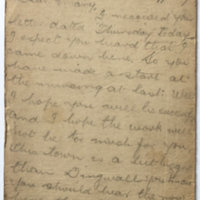 I received your
letter dated Thursday today
I expect you heard that I
came down here. So you
have made a start at
the at last. Well
I hope you will be
and I hope the work will
not be to much for you
This town is a bit bigger
than Dingwall
you should hear the